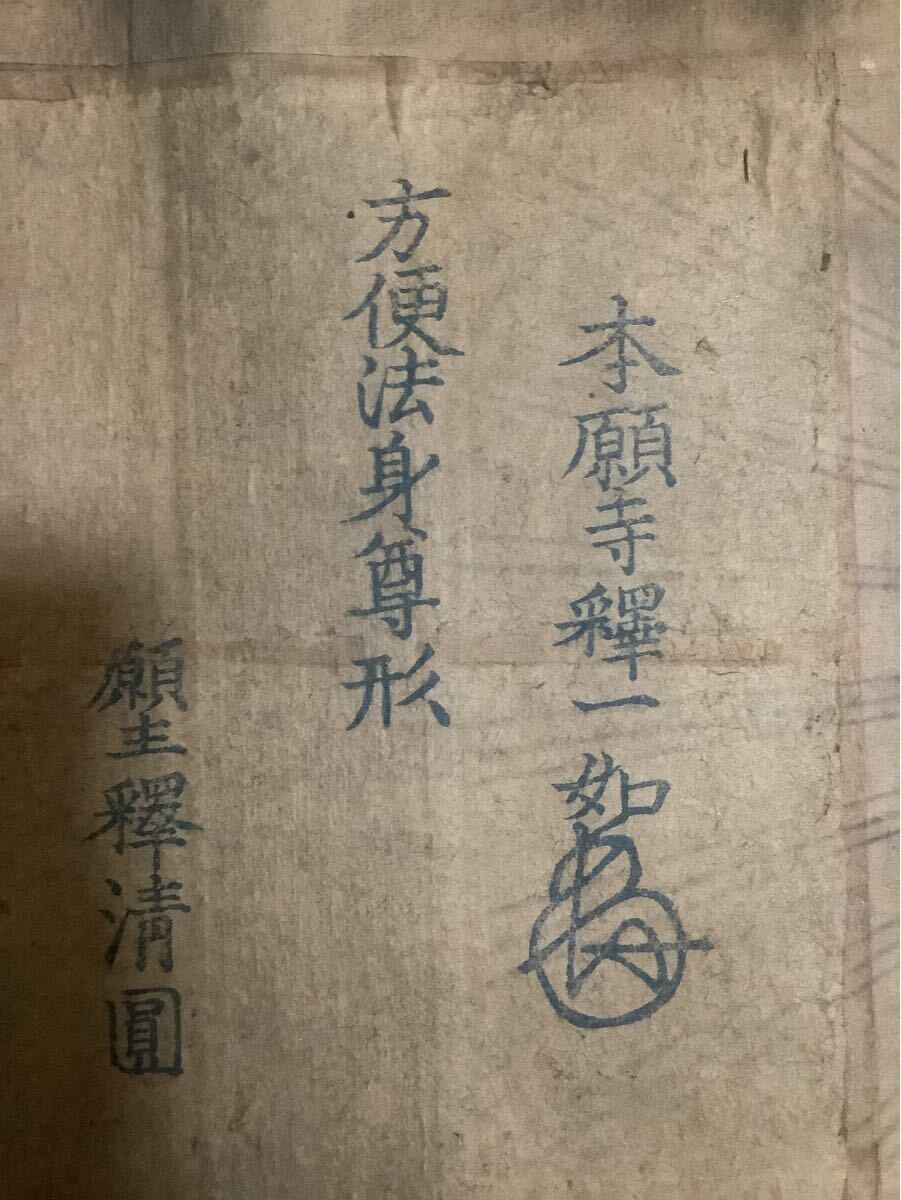 本願寺釋一如
方便法身尊形
願主釋清圓